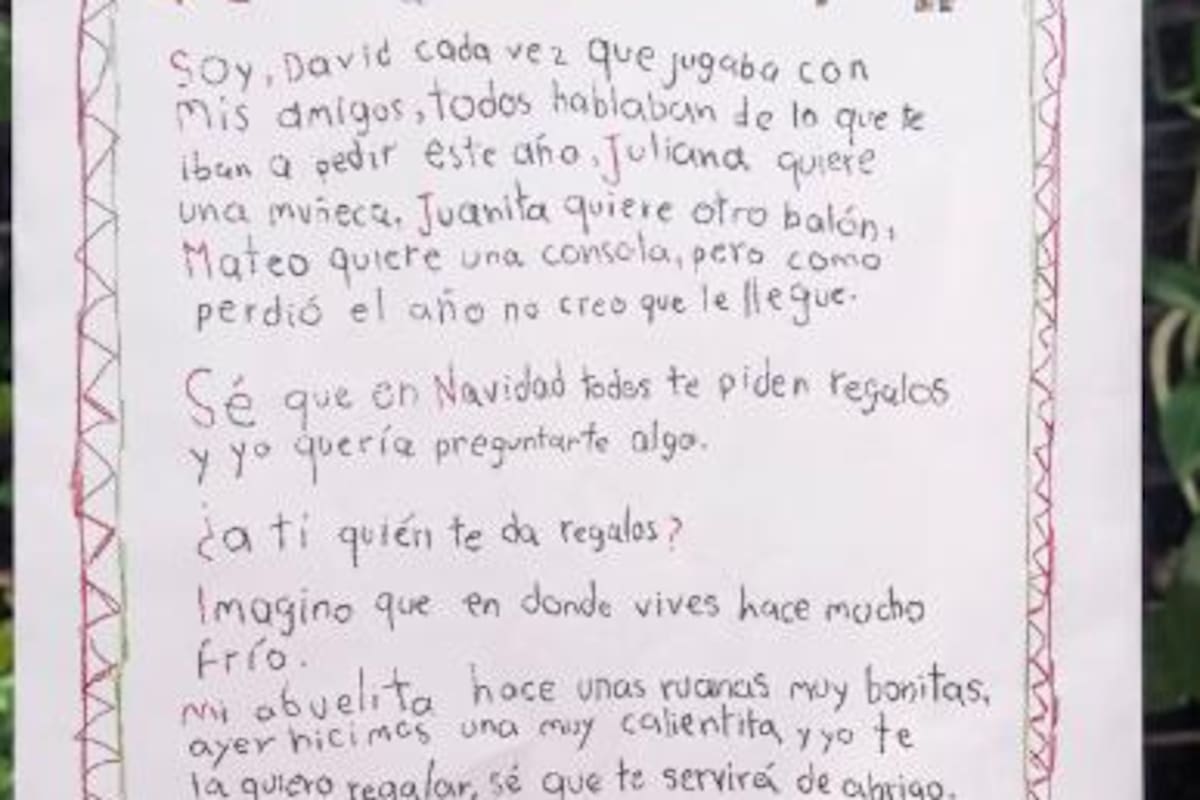 Soy, David cada vez que jugaba con
mis amigos, todos hablaban de lo que te
iban a pedir este año, Juliana quiere
una muñeca, Juanita quiere otro balón,
Mateo quiere una consola, pero como
perdió el año no creo que le llegue.
Sé que en Navidad todos te piden regalos
y yo quería preguntarte algo.
¿a ti quién te da regalos?
Imagino que en donde vives hace mucho
frío.
Mi abuelita hace unas ruanas muy bonitas,
ayer hicimos una muy calientita, y yo te
la quiero regalar, sé que te servirá de abrigo.